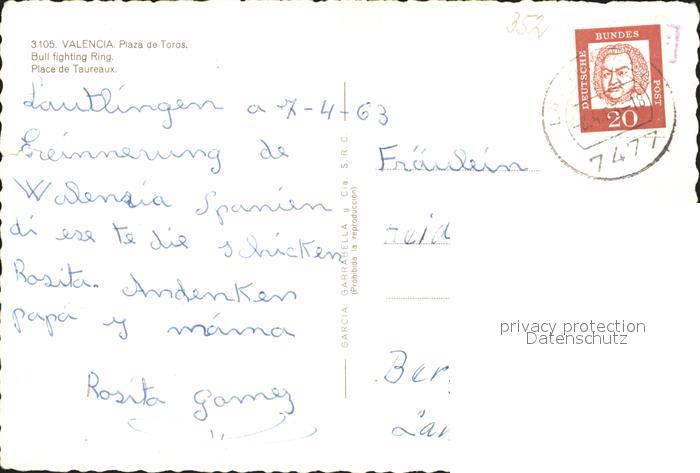 352
3.105. VALENCIA. Plaza de Toros.
Bull fighting Ring.
Place de Taureaux.
DEUTSCHE BUNDES POST
20
7477
Lautlingen a 7-4-63
Ereinnerung de
Walenzia Spanien
di ese te die schicken
Rosita. Andenken
papá y máma
Rosita Gomez
GARCIA GARRABELLA y Cia. S.R.C.
(Prohibida la reproducción)
Fräulein
Heid
Ber
Lan
privacy protection
Datenschutz